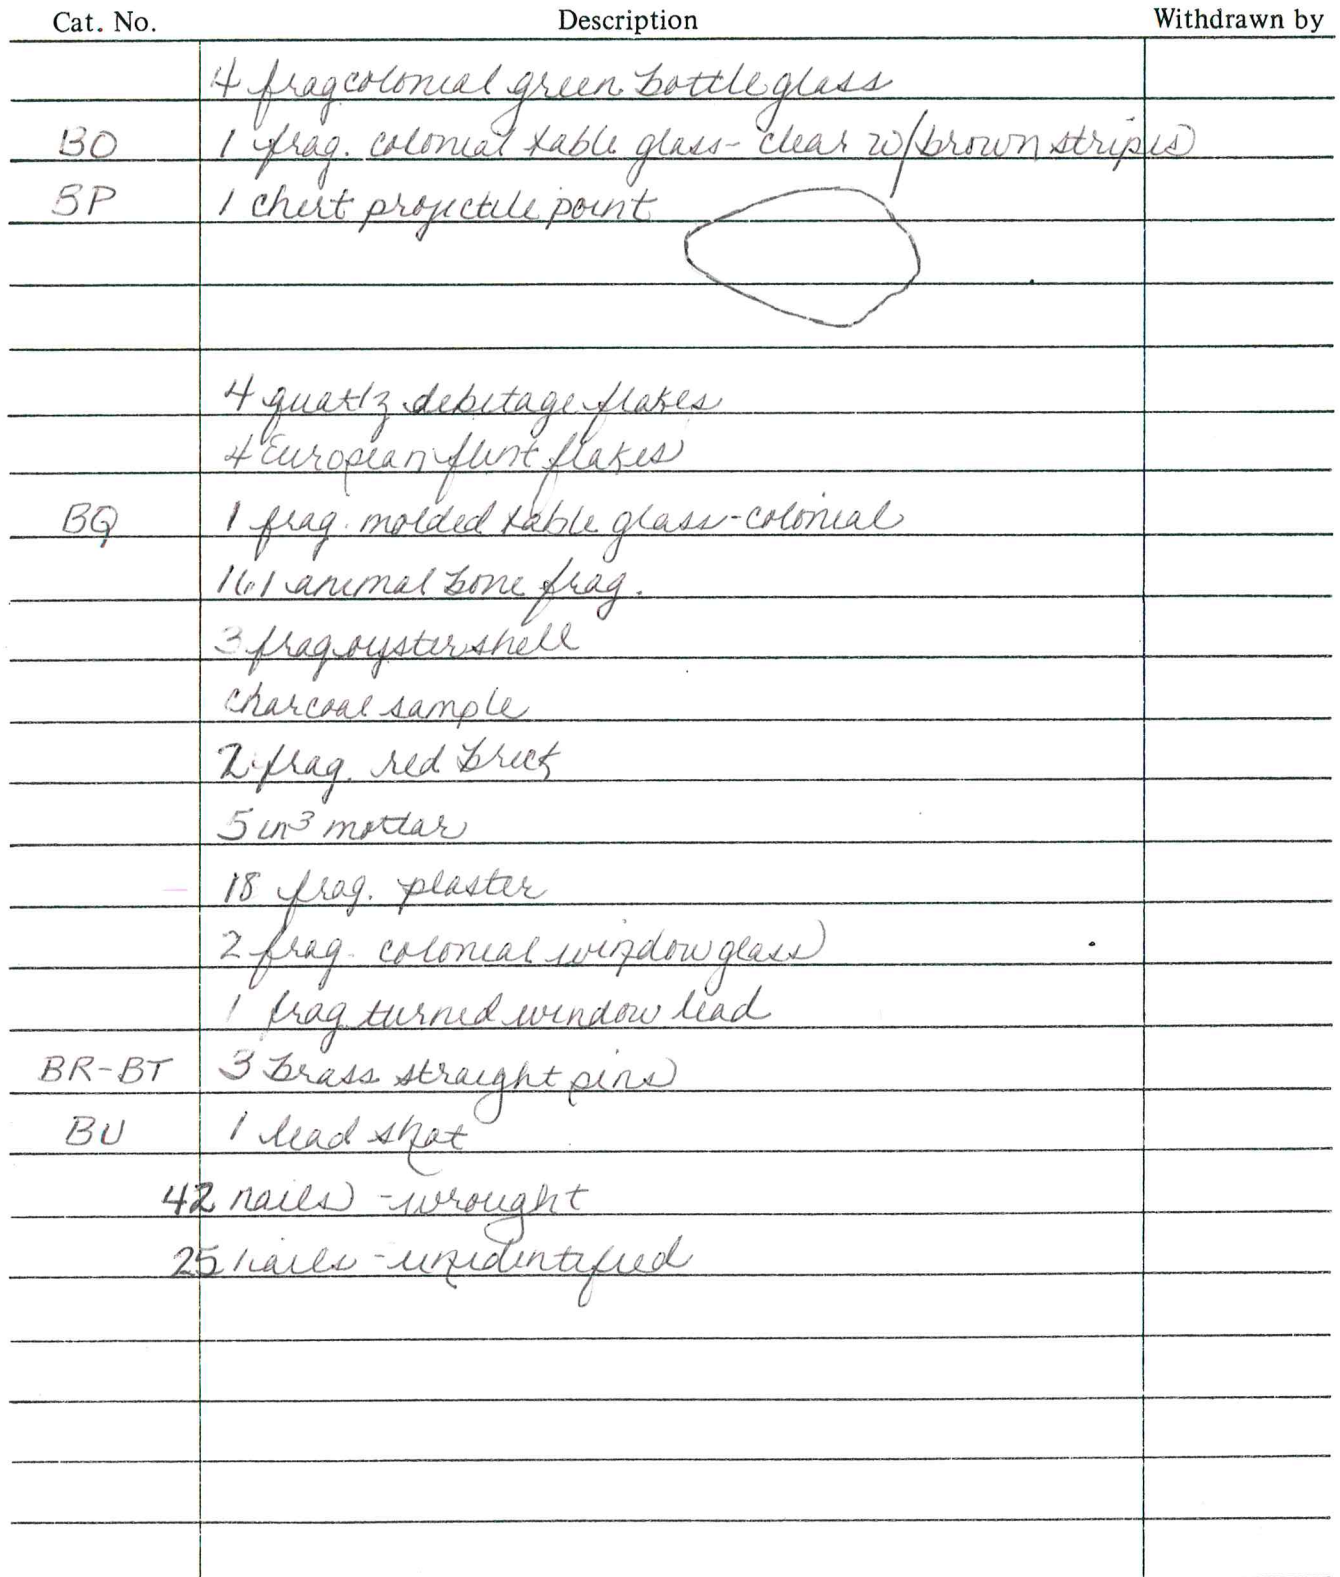 Cat. No. Description Withdrawn by
4 frag colonial green bottle glass
BO 1 frag. colonial table glass - clear w/brown stripes
BP 1 chert projectile point
4 quartz debitage flakes
4 European flint flakes
BQ 1 frag. molded table glass - colonial
161 animal bone frag.
3 frag oyster shell
charcoal sample
2 frag. red brick
5 in³ mortar
18 frag. plaster
2 frag. colonial window glass
1 frag turned window lead
BR-BT 3 brass straight pins
BU 1 lead shot
42 nails - wrought
25 nails - unidentified